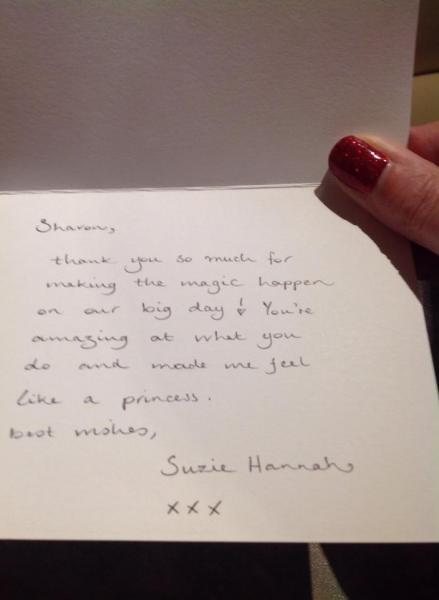 Sharon,
thank you so much for
making the magic happen
on our big day! You're
amazing at what you
do and made me feel
like a princess.
best wishes,
Suzie Hannah
x x x